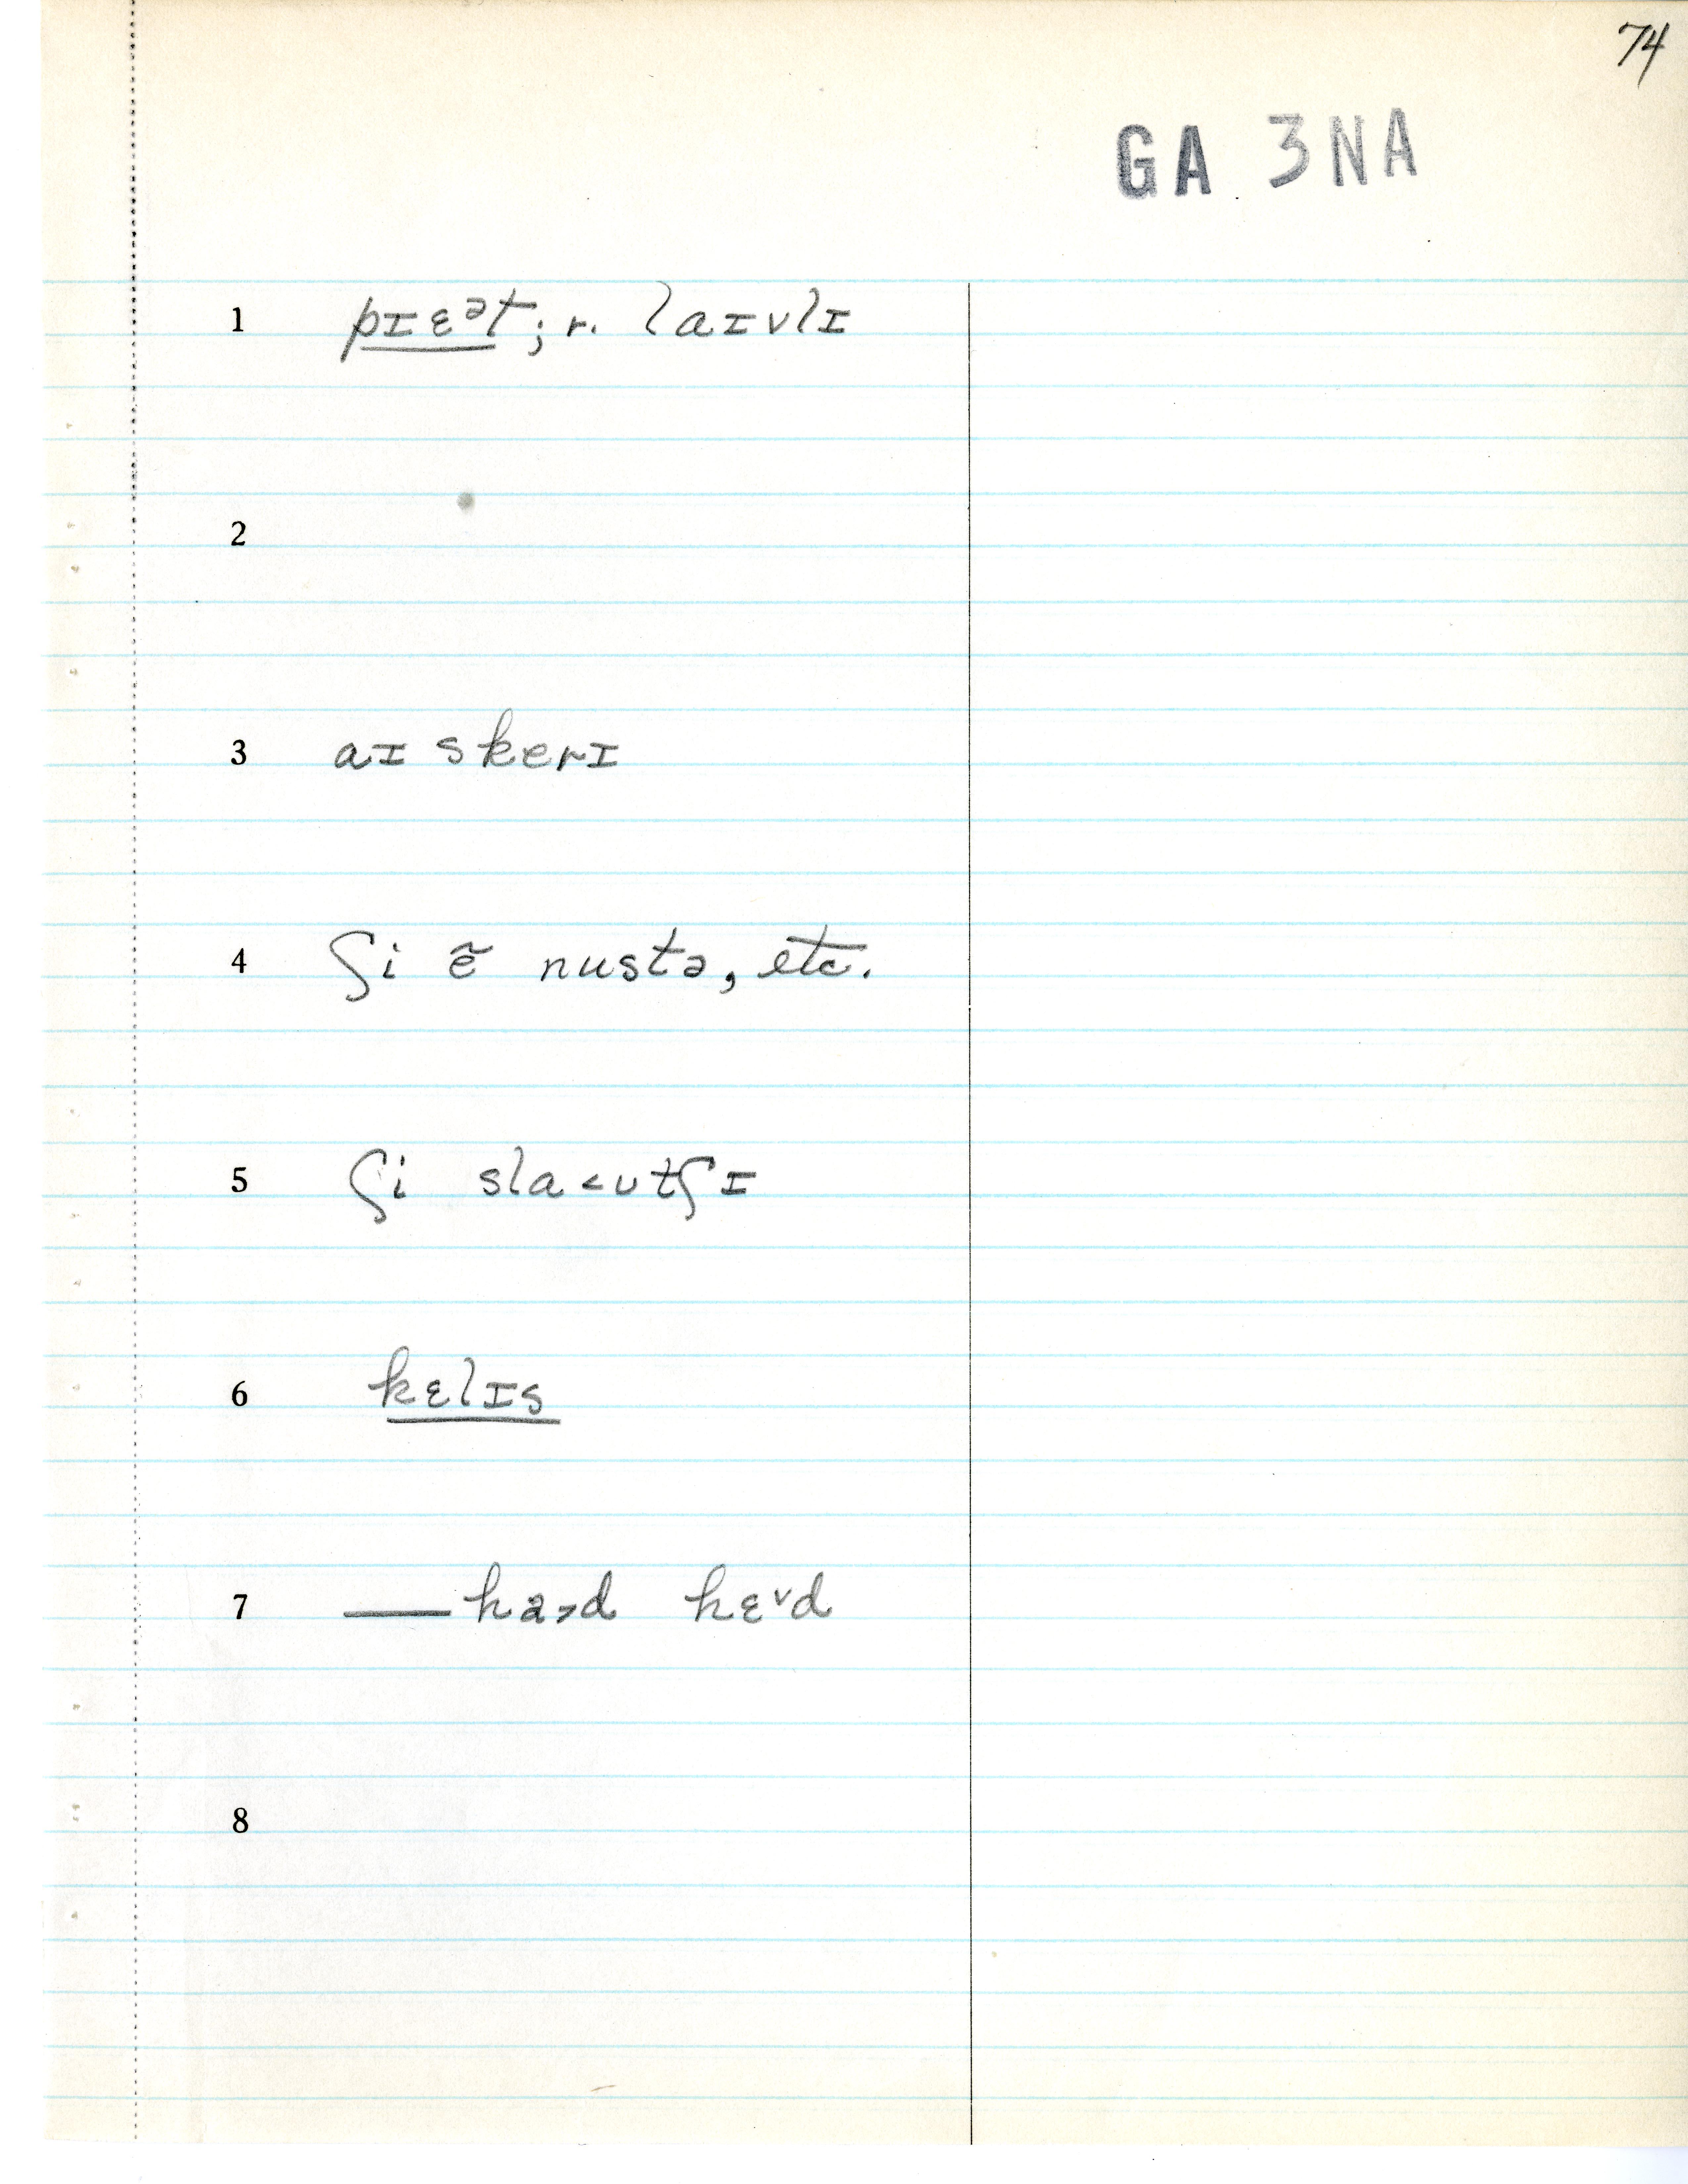 74
GA 3NA
1 pɪɛᵊt; r. laɪvlɪ
2
3 aɪ skerɪ
4 ʃi ẽ nustə, etc.
5 ʃi sla˂ʊtʃɪ
6 kɛlɪs
7 — ha˃d hɛ˅d
8